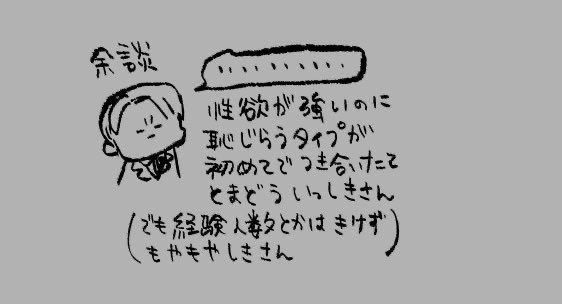 余談
、、、、、、、、、、
性欲が強いのに
恥じらうタイプが
初めてでつき合いたてで
とまどういっしきさん
(でも経験人数とかはきけず
もやもやしきさん)